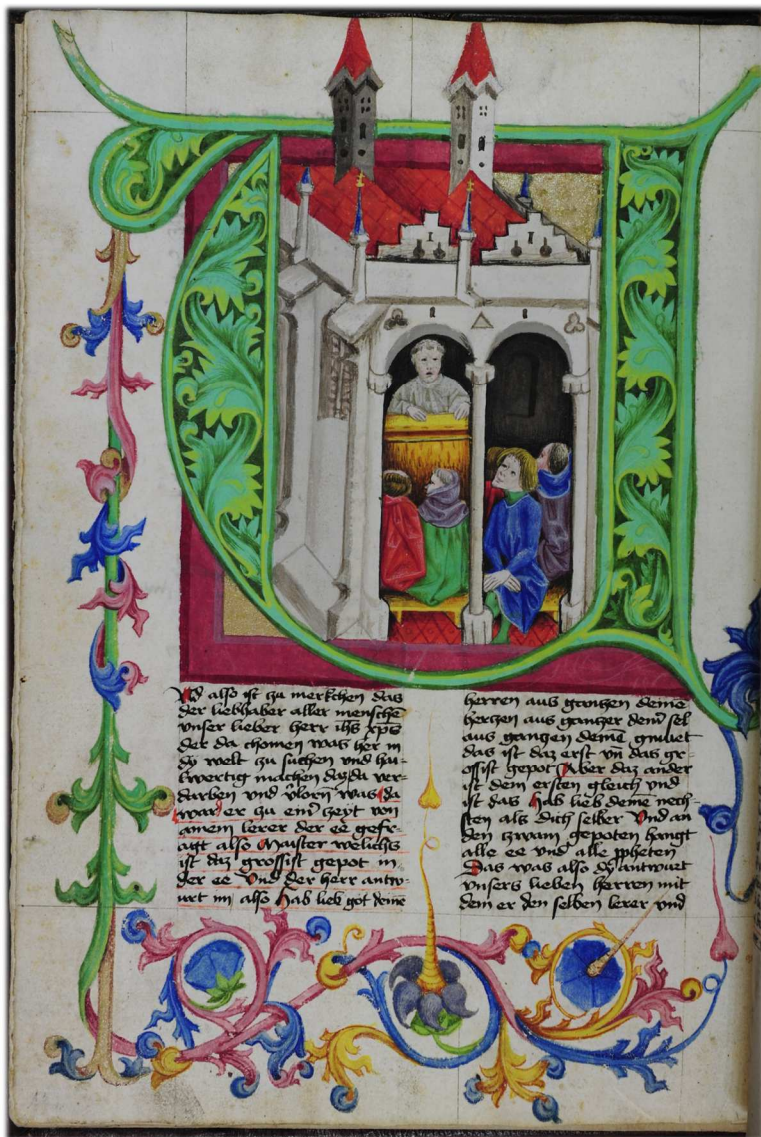 Vnd also ist zu merkchen das
der liebhaber aller mensche
vnser lieber herr ihs xps
der da chomen was her in
dy welt zu suchen vnd hai-
wertig machen daz da ver-
darben vnd vlorn was da
war er zu eim zeyt von
ainem lerer der ee gefr-
agt also Maister welichs
ist daz grossist gepot in
der ee Vnd der herr antw-
urt im also Hab lieb got deine
herren aus gantzen deine
herczen aus gantzer deinr sel
aus gantzen deine gmuet
das ist daz erst vn das gr-
ossist gepot Aber daz ander
ist dem ersten gleich vnd
ist das Hab lieb deine nech-
sten als dich selber Vnd an
den zwain gepoten hangt
alle ee vnd alle ppheten
Das was also dy antwurt
vnsers lieben herren mit
dem er den selben lerer vnd